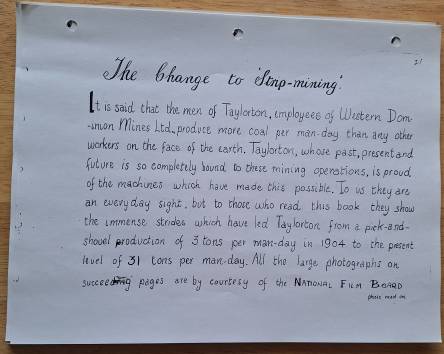 21
The Change to 'Strip-mining'.
It is said that the men of Taylorton, employees of Western Dom-
-inion Mines Ltd. produce more coal per man-day than any other
workers on the face of the earth. Taylorton, whose past, present and
future is so completely bound to these mining operations, is proud
of the machines which have made this possible. To us they are
an every day sight, but to those who read this book they show
the immense strides which have led Taylorton from a pick-and-
shovel production of 3 tons per man-day in 1904 to the present
level of 31 tons per man-day. All the large photographs on
succeeding pages are by courtesy of the NATIONAL FILM BOARD